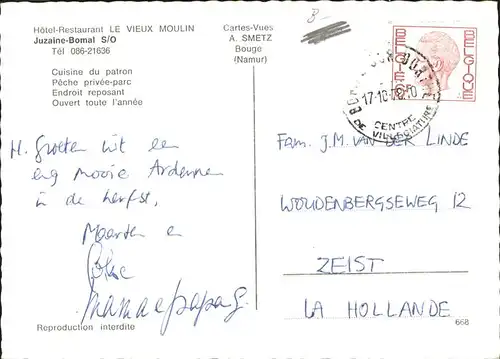 Hôtel-Restaurant LE VIEUX MOULIN
Juzaine-Bomal S/O
Tél 086-21636
Cuisine du patron
Pêche privée-parc
Endroit reposant
Ouvert toute l'année
Cartes-Vues
A. SMETZ
Bouge
(Namur)
BELGIE
BELGIQUE
17-10
CENTRE
DE VILLEGIATURE
H. Groeten uit een
erg mooie Ardennen
in de herfst,
Maarten en
Mama e papa G.
Fam. J.M. VAN DER LINDE
WOUDENBERGSEWEG 12
ZEIST
LA HOLLANDE
Reproduction interdite
668